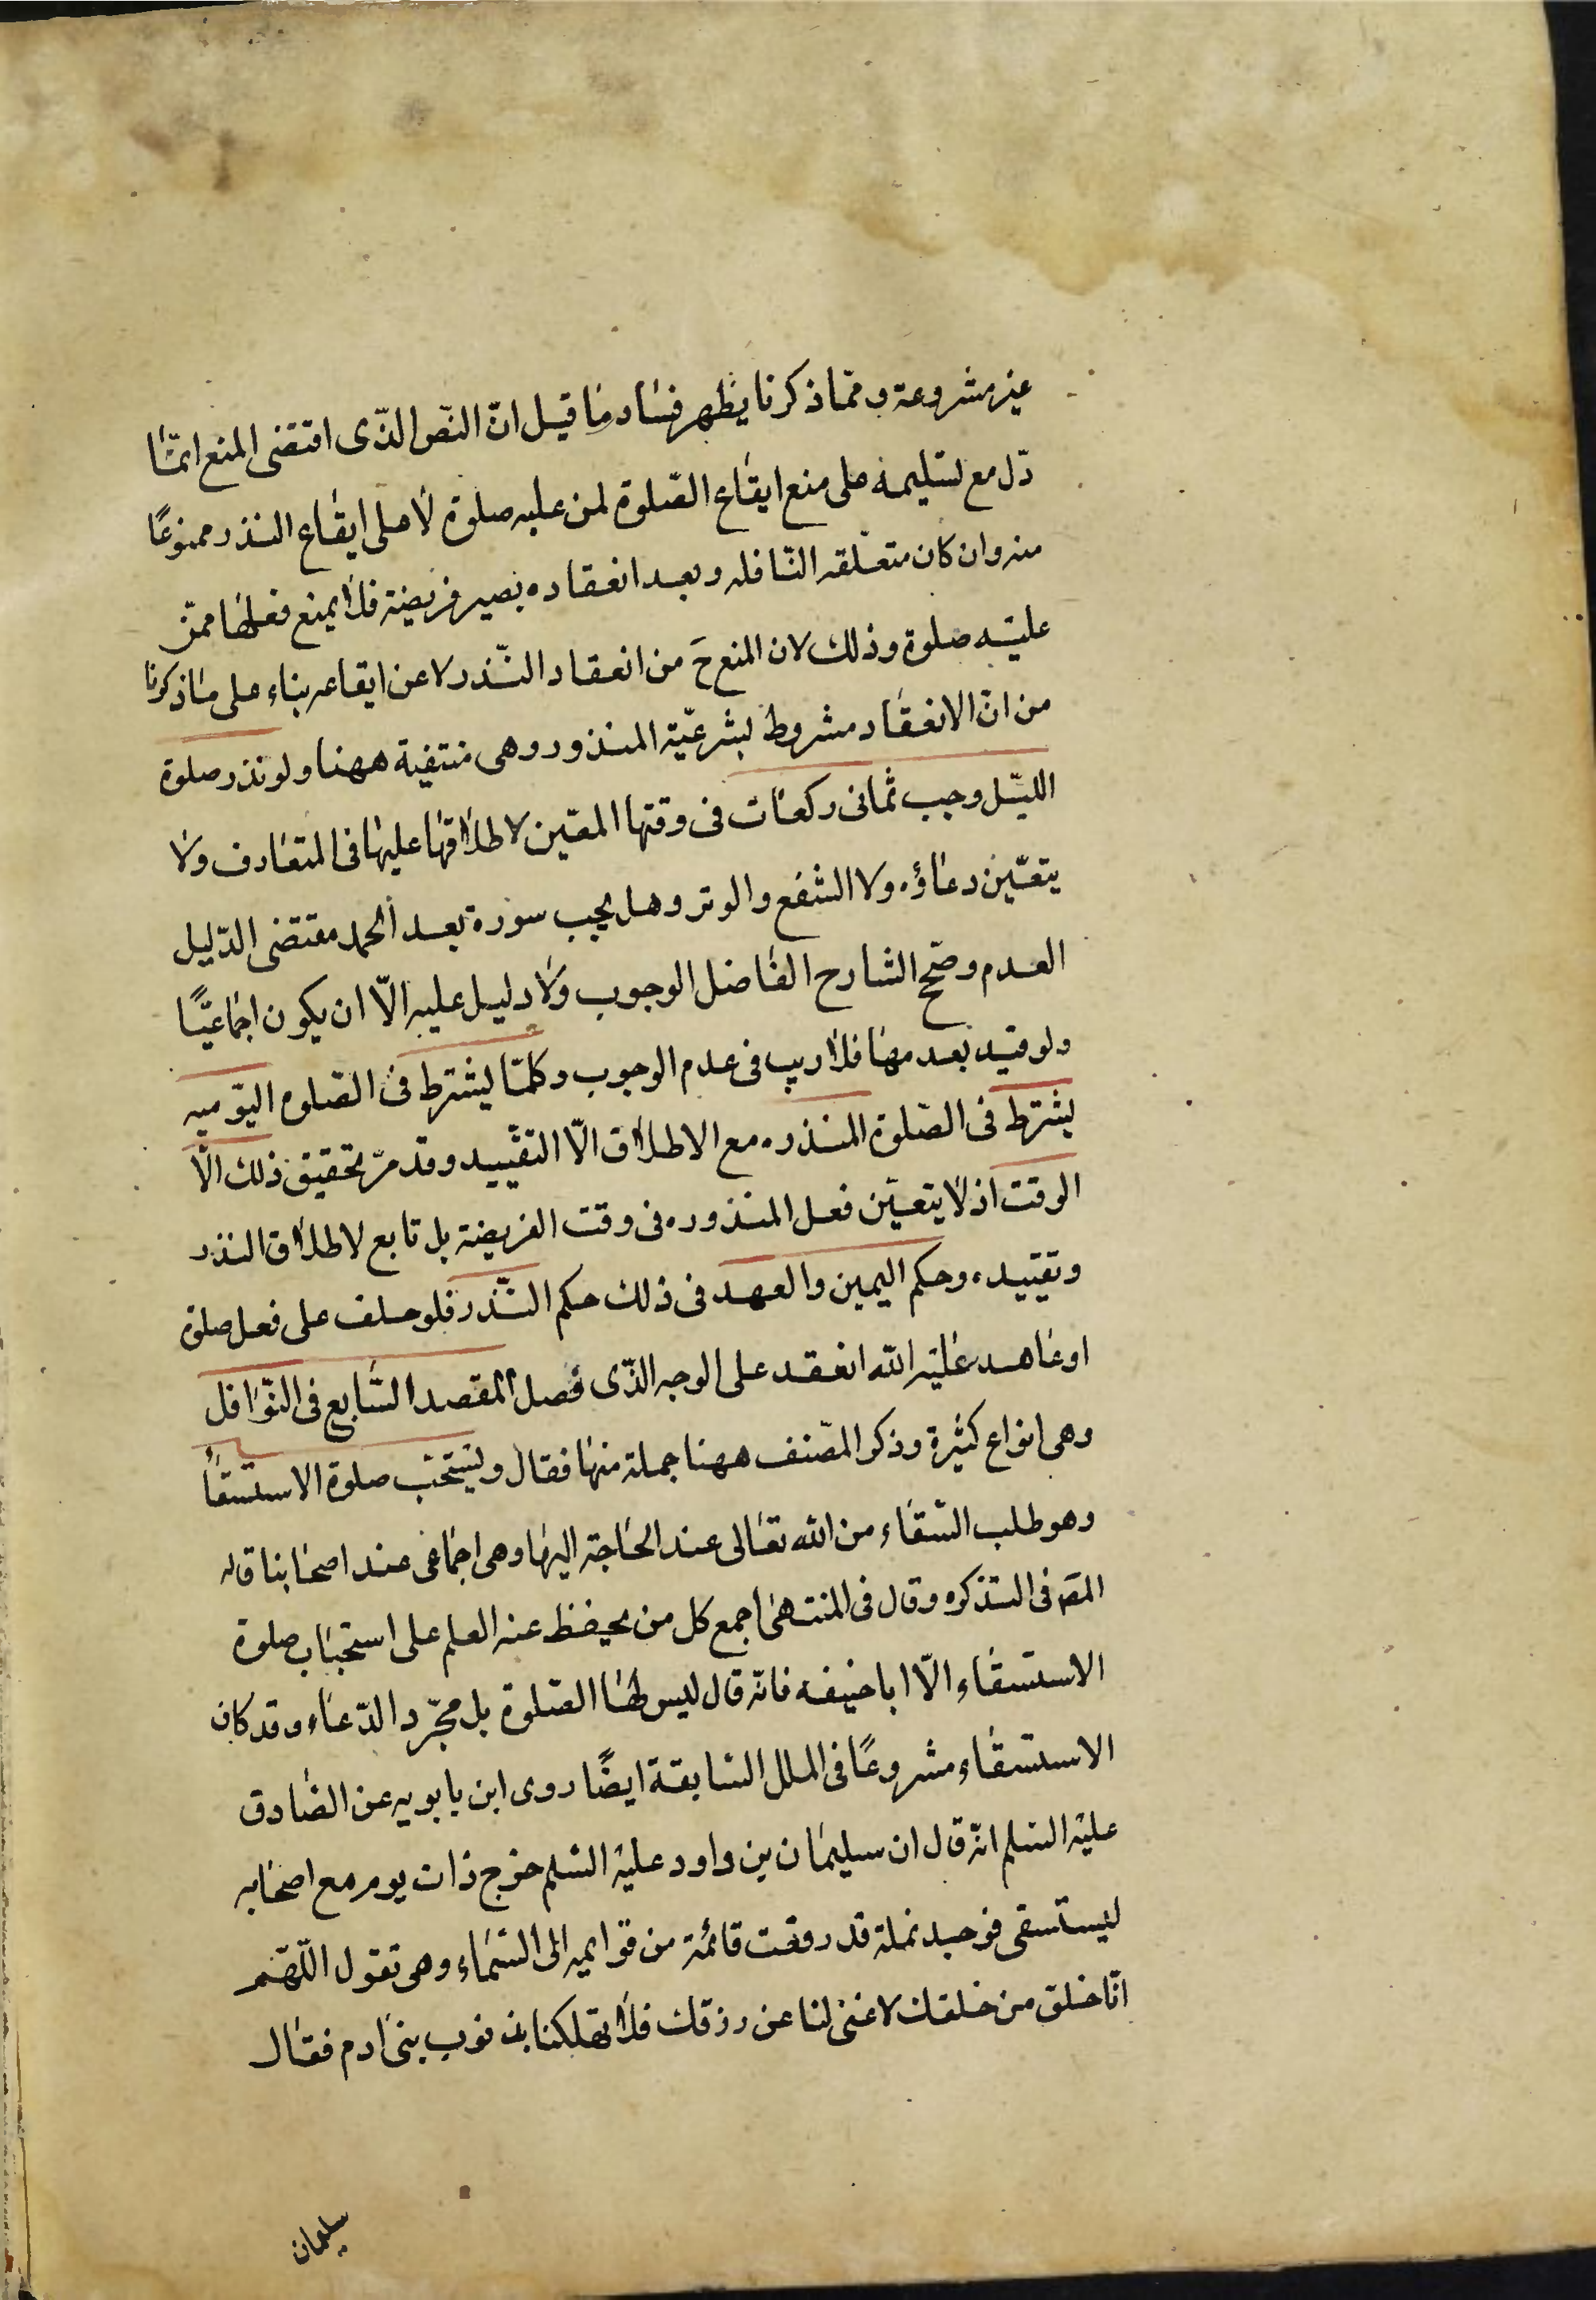 غير مشروعة و ممّا ذكرنا يظهر فساد ما قيل انّ النّص الذّى اقتضى المنع انمّا
دّل مع تسليمه على منع ايقاع الصّلوة لمن عليه صلوة لا على ايقاع النذر ممنوعًا
منه وان كان متعلّقه النّافله وبعد انعقاده يصير فريضة فلا يمنع فعلها ممّن
عليه صلوة وذلك لان المنع حَ من انعقاد النّذر لا عن ايقاعه بناء على ما ذكرنا
من انّ الانعقاد مشروط بشرعيّة المنذور وهى منتفية ههنا ولو نذر صلوة
الليّل وجب ثمانى ركعات فى وقتها المعّين لاطلاقها عليها فى المتعارف ولا
يتعّين دعاؤه ولا الشفع والوتر وهل يجب سورة بعد الحمد مقتضى الدّليل
العدم وصّح الشارح الفاضل الوجوب ولا دليل عليه الّا ان يكون اجماعيًّا
ولو قيد بعدمها فلا ريب فى عدم الوجوب وكلمّا يشترط فى الصّلوه اليوّميه
يشترط فى الصّلوة المنذره مع الاطلاق الّا التقييد وقد مرّ تحقيق ذلك الّا
الوقت اذ لا يتعيّن فعل المنذوره فى وقت الفريضة بل تابع لاطلاق النذر
وتقييده وحكم اليمين والعهد فى ذلك حكم النّذر فلو حلف على فعل صلوة
او عاهد عليه الله انعقد على الوجه الذّى فصل المقصد السّابع فى النّوافل
وهى انواع كثيرة وذكر المصّنف ههنا جملة منها فقال ويستحّب صلوة الاستسقأ
وهو طلب السّقاء من الله تعالى عند الحاجة اليها وهى اجماعى عند اصحابنا قاله
المصَ فى التذكره وقال فى المنتهى اجمع كل من يحفظ عنه العلم على استحباب صلوة
الاستسقاء الّا ابا حنيفه فانّه قال ليس لها الصّلوة بل مجّرد الدّعاء وقد كان
الاستسقاء مشروعًا فى الملل السّابقة ايضًا روى ابن بابويه عن الصّادق
عليه السّلم انّه قال ان سليمان بن داود عليه السّلم خرج ذات يوم مع اصحابه
ليستسقى فوجد نملة قد رفعت قائمة من قوايمه الى السّماء وهى تقول اللّهّم
انّا خلق من خلقك لا غنى لنا عن رزقك فلا تهلكنا بذنوب بنى ادم فقال
سليمان